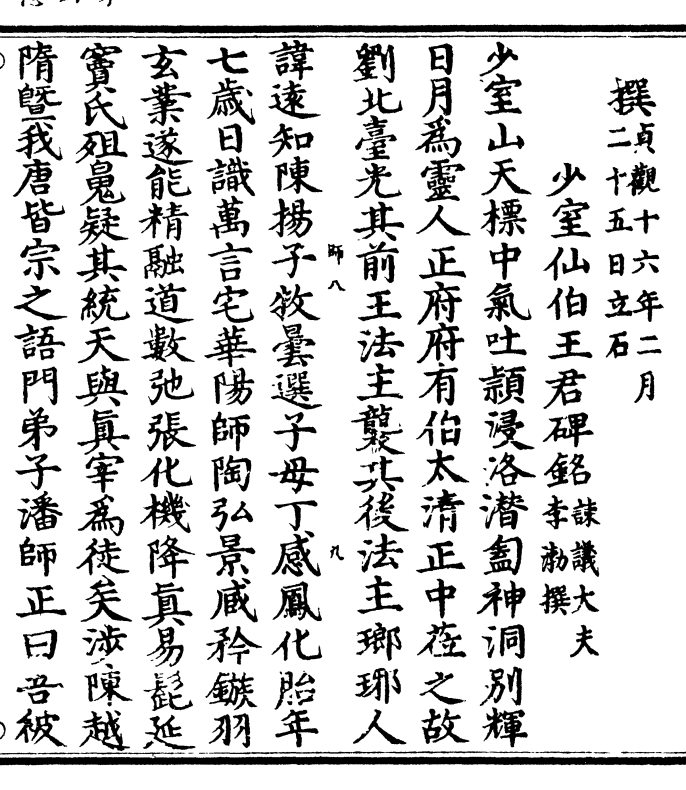 撰貞觀十六年二月
二十五日立石
少室仙伯王君碑銘諫議大夫
李渤撰
少室山天標中氣吐潁浸洛潛匎神洞別輝
日月為靈人正府府有伯太清正中蒞之故
劉北臺光其前王法主襲其後法主瑯琊人
諱遠知陳揚子敉曇選子母丁感鳳化胎年
七歲日識萬言宅華陽師陶弘景臧矜鏃羽
玄業遂能精融道數弛張化機降真易髭延
竇氏殂鬼疑其統天與真宰為徒矣涉陳越
隋曁我唐皆宗之語門弟子潘師正曰吾被
師八
九